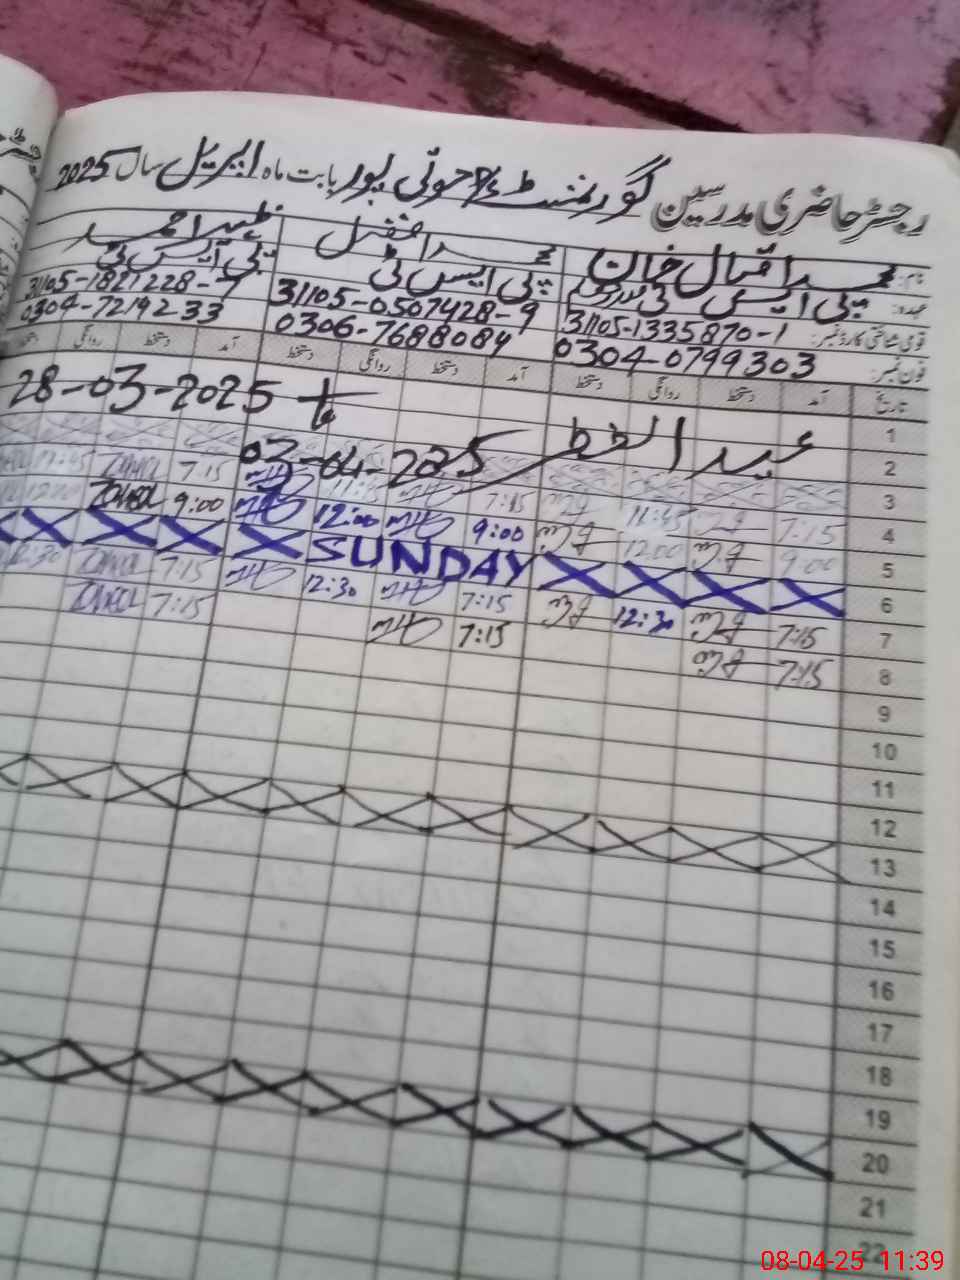 رجسٹر حاضری مدرسین گورنمنٹ بابت ماہ اپریل سال 2025
نام: محمد اقبال خان محمد افضل ظہیر احمد
عہدہ: پی ایس ٹی پی ایس ٹی پی ایس ٹی
قومی شناختی کارڈ نمبر: 31105-1335870-1 31105-0507428-9 31105-1827228-7
فون نمبر: 0304-0799303 0306-7688084 0304-7219233
تاریخ آمد دستخط روانگی دستخط آمد دستخط روانگی دستخط آمد دستخط روانگی دستخط
1
2 عید الفطر 28-03-2025 تا 03-04-2025
3
4 7:15 11:45 7:15 11:45 7:15 ZAHOOR 11:45
5 9:00 12:00 9:00 12:00 9:00 ZAHOOR 12:00
6 SUNDAY
7 7:15 12:30 7:15 12:30 7:15 ZAHOOR 12:30
8 7:15 7:15 7:15 ZAHOOR
9
10
11
12
13
14
15
16
17
18
19
20
21
22
08-04-25 11:39